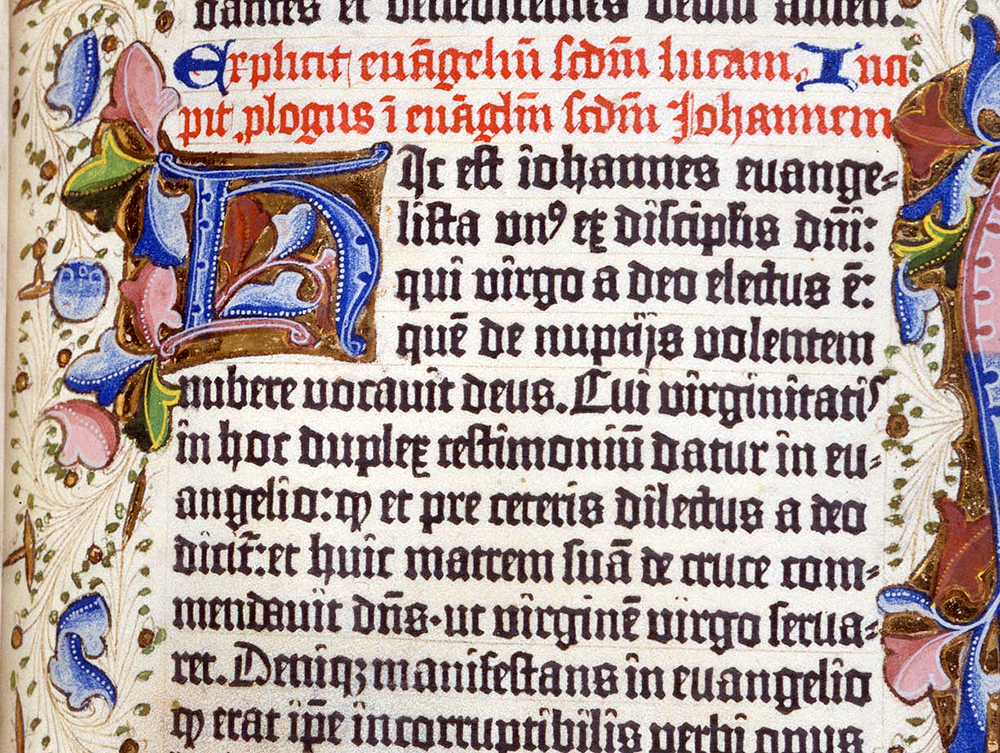 dantes et benedicentes deum amen.
Explicit euãgeliũ scdm̃ lucam. Inci
pit ꝓlogus ĩ euãgliũ scdm̃ Johannem
Hic est iohannes euange⸗
lista unꝰ ex discipl̃is dñi:
qui virgo a deo electus ẽ:
quẽ de nuptijs volentem
nubere vocauit deus. Cui virginitatis
in hoc duplex testimoniũ datur in eu⸗
angelio: ꝙ et pre ceteris dilectus a deo
dicit̃: et huic matrem suã de cruce com⸗
mendauit dñs· ut virginẽ virgo serua⸗
ret. Deniqꝫ manifestans in euangelio
ꝙ erat ip̃e incorruptibilis verbi opus